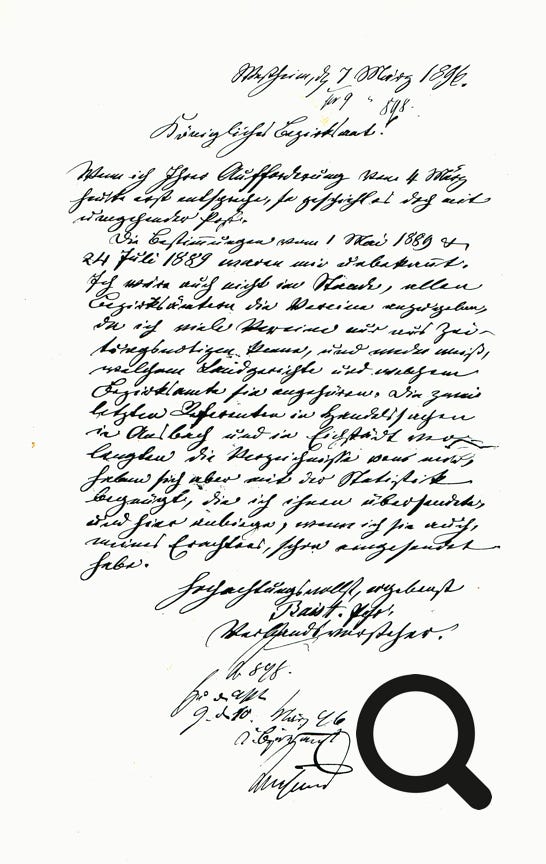 Westheim, d. 7 März 1896.
Königliches Bezirksamt!
Wenn ich Ihrer Aufforderung vom 4 März
heute erst entspreche, so geschieht es doch mit
umgehender Post.
Die Bestimungen vom 1 Mai 1889 &
24 Juli 1889 waren mir unbekant.
Ich wäre auch nicht im Stande, allen
Bezirksämtern die Vereine anzugeben,
da ich viele Vereine nur aus Zei-
tungsnotizen kenne, und nicht weiß,
welchem Landgerichte und welchem
Bezirksamte sie angehören. Die zwei
letzten Referenten in Handelssachen
in Ansbach und in Eichstädt ver-
langten die Verzeichnisse von mir,
haben sich aber mit der Statistik
begnügt, die ich ihnen übersendete,
und hier einbiege, wenn ich sie auch,
meines Erachtens, schon eingesendet
habe.
Hochachtungsvollst, ergebenst
Verbandsvorsteher.
898.
9. 10. März 96